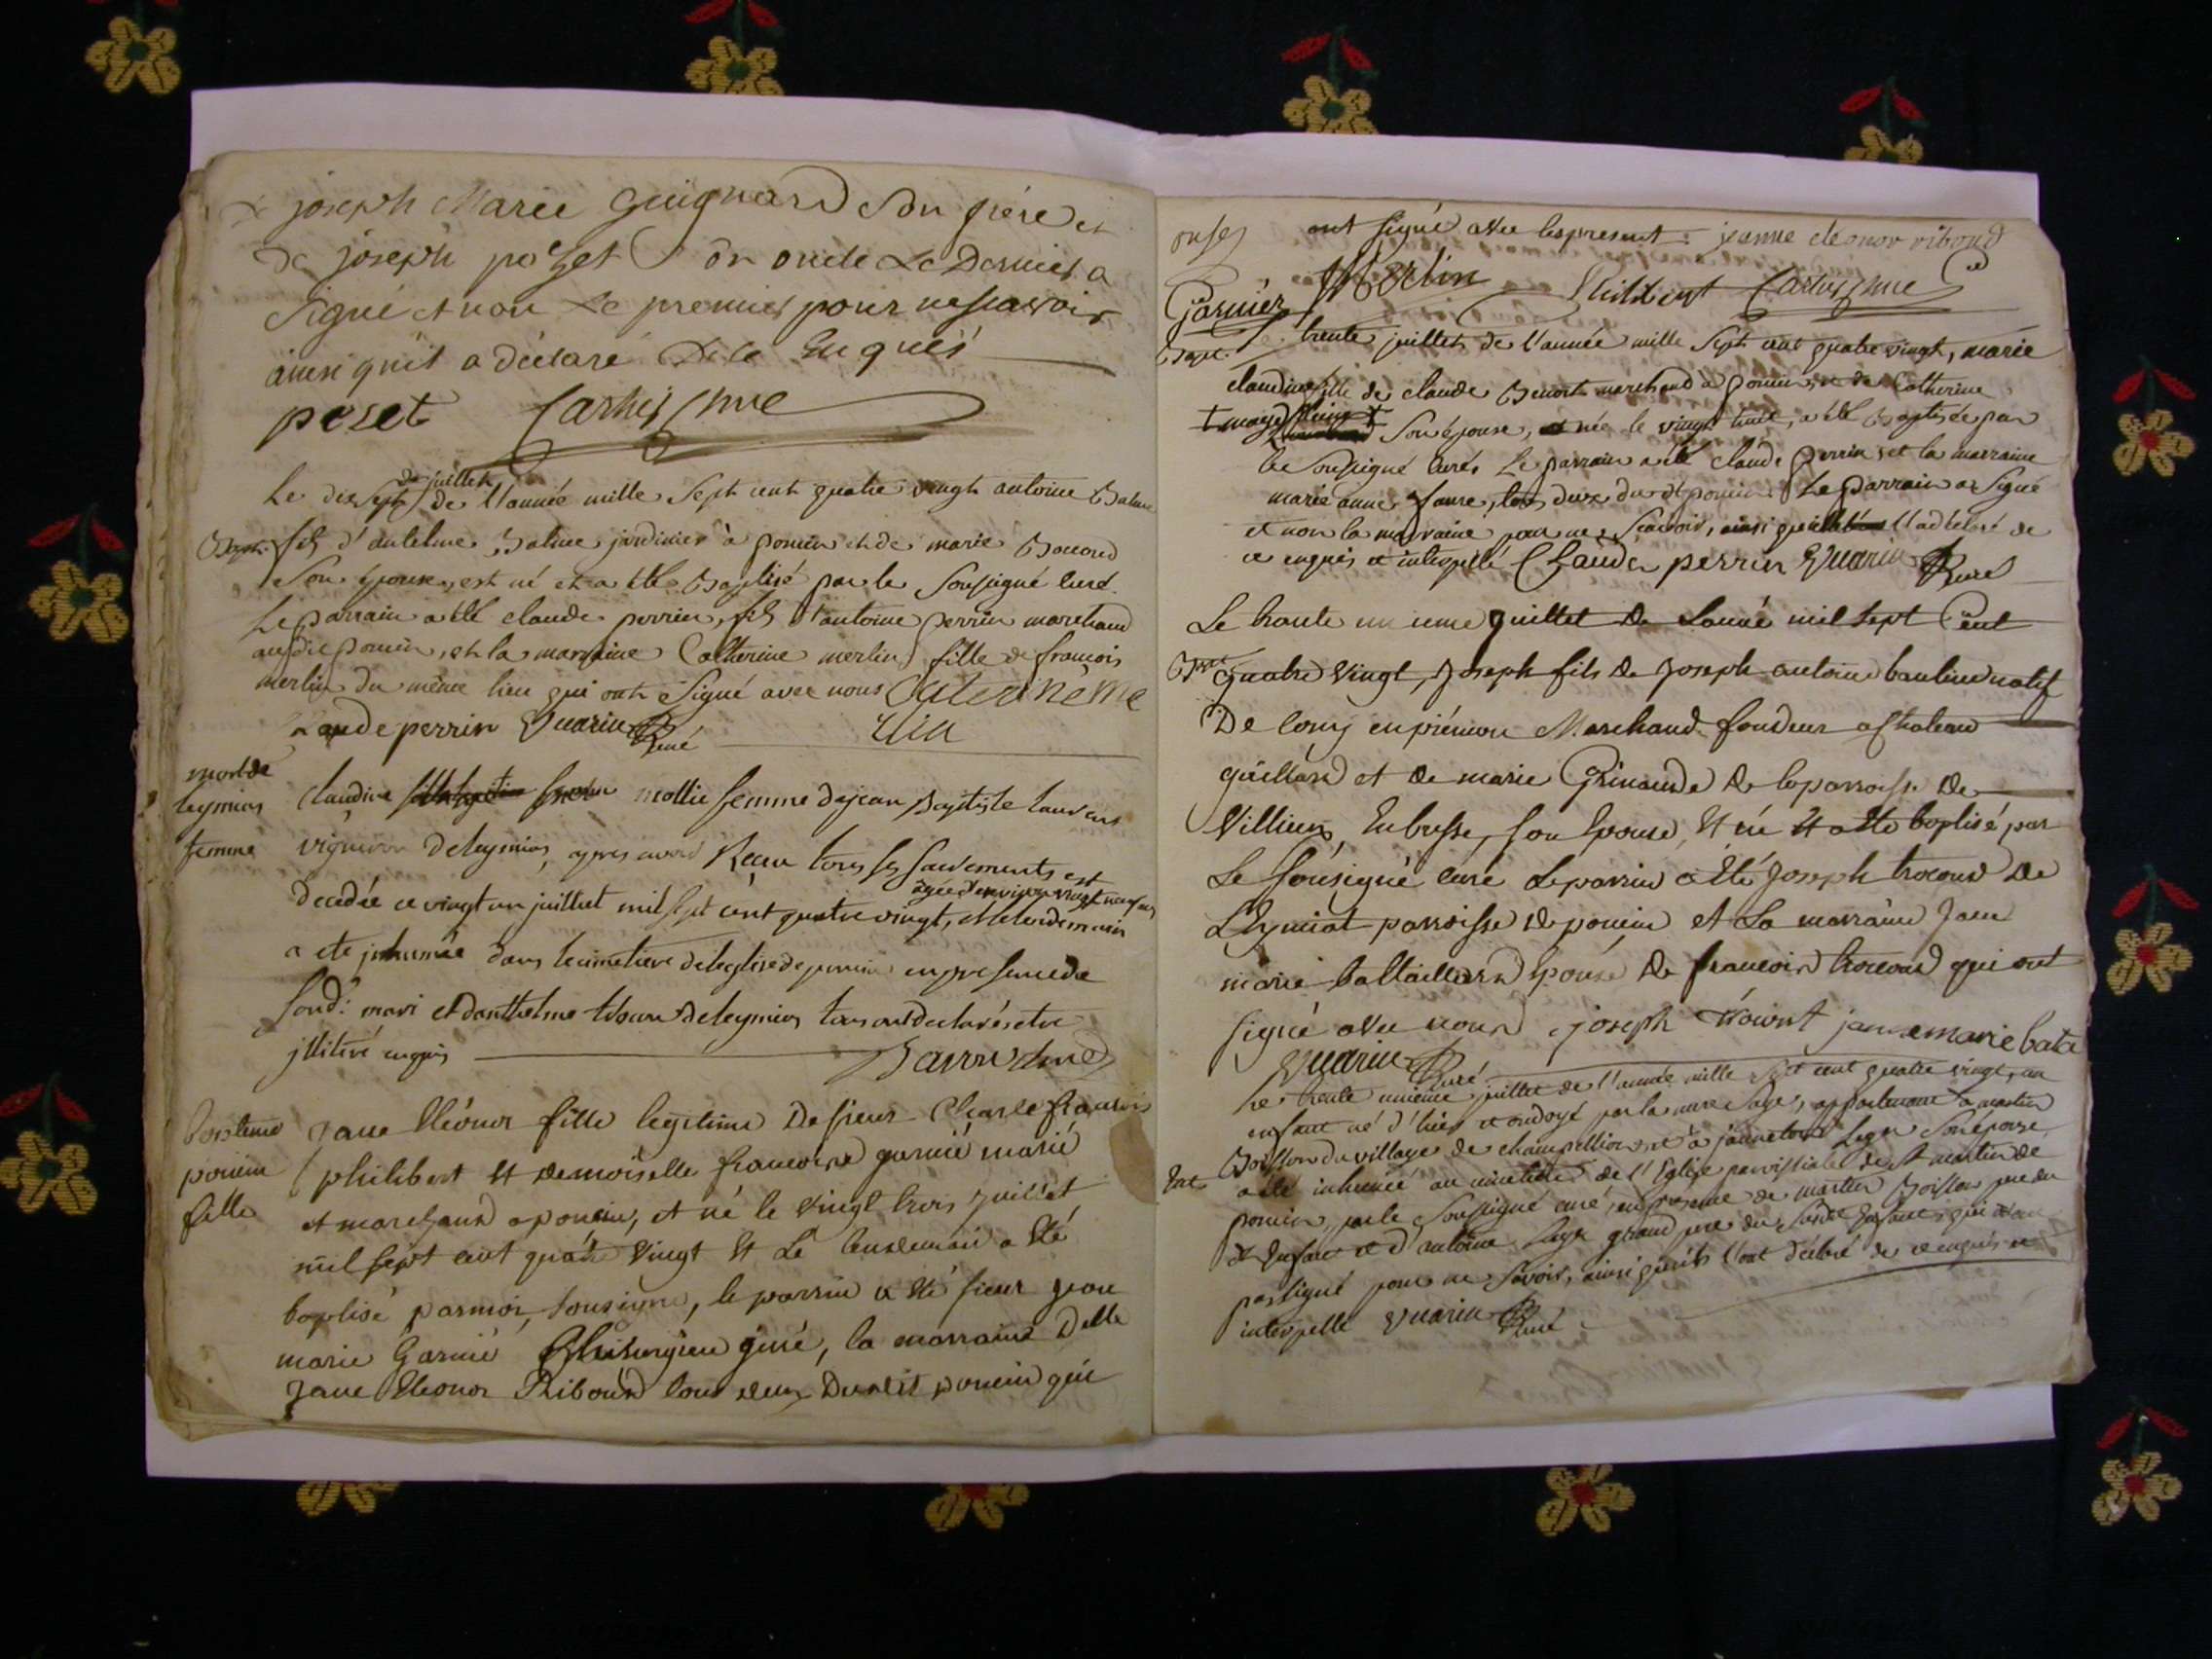 De joseph Marie Guignard Son frère et
de joseph pozet Son oncle Le Dernier a
signé et non Le premier pour ne scavoir
ainsi qu'il a déclaré De ce Enquis
pozet
de juillet
Le dix sept de l'année mille sept cent quatre vingt antoine
Bapt. fils d'antelme jardinier à poncin et de marie
Son épouse, est né et a été Baptisé par le Soussigné curé.
Le parrain a été claude perrin, fils d'antoine perrin marchand
audit poncin, et la marraine Catherine merlin fille de francois
merlin du même lieu qui ont signé avec nous
claude perrin Vuarin Curé
mort de
leymias
femme
claudine mollie femme de jean Baptiste
vigneron de leymias, apres avoir Recu tous ses sacrements est
âgée d'environ vingt neuf ans
decedée ce vingt un juillet mil sept cent quatre vingt, et le lendemain
a eté inhumée dans le cimetiere de leglise de poncin en presence de
sond. mari et danthelme de leymias tous ont declarés etre
jllitéré enquis
baptême
poncin
fille
Jane Eléonor fille legitime De sieur Charle francois
philibert Et demoiselle francoise garnié marié
et marchand a poncin, et né le vingt trois juillet
mil sept cent quatre vingt Et Le lendemain a Eté
baptisé par moi, sousigné, le parrin a Eté sieur jean
marie Garnié Chirurgien juré, la marraine Delle
Jane Eléonor Riboud tous deux Dudit poncin qui
ont signé avec les present. jeanne eleonor riboud
Merlin Philibert
Garnier
Bapt. Le trente juillet de l'année mille sept cent quatre vingt, marie
claudine fille de claude Benoit marchand à poncin, et de Catherine
Son épouse, née le vingt huit, a été Baptisée par
le Soussigné curé. Le parrain a été claude perrin et la marraine
marie anne faure, tous deux dudt poncin. Le parrain a signé
et non la marraine pour ne Scavoir, ainsi l'a déclaré de
ce enquis et interpellé Claude perrin Vuarin Curé
Le trante un ieme juillet De Lanné mil sept Cent
Bapt quatre vingt, Joseph fils De Joseph antoine natif
De en piémon Marchand fondeur a Chateau
gaillard et de marie Grinande De la parroisse De
Villieu, En bresse, son Epouse, Et né Et a eté baptisé par
Le sousigné curé Le parrin a Eté Joseph trocond De
Leymiat parroisse De poncin et La marraine Jane
marie battaillard Epouse De francois trocond qui ont
signé avec nous joseph janne marie bata
Vuarin Curé
Le trente unieme juillet de l'année mille sept cent quatre vingt, un
enfant né d'hier et ondoyé par la mere Sage, appartenant à martin
Boisson du village de champeillon, et à janne Leger Son épouse,
Ent. a été inhumé au cimetière de l'Eglise parroissiale de St martin de
poncin, par le Soussigné curé, en presence de martin Boisson pere du
dt Enfant et d'antoine Leger grand pere du susdt Enfant, qui n'ont
pas signé pour ne Savoir, ainsi qu'ils l'ont déclaré de ce enquis et
interpellé Vuarin Curé